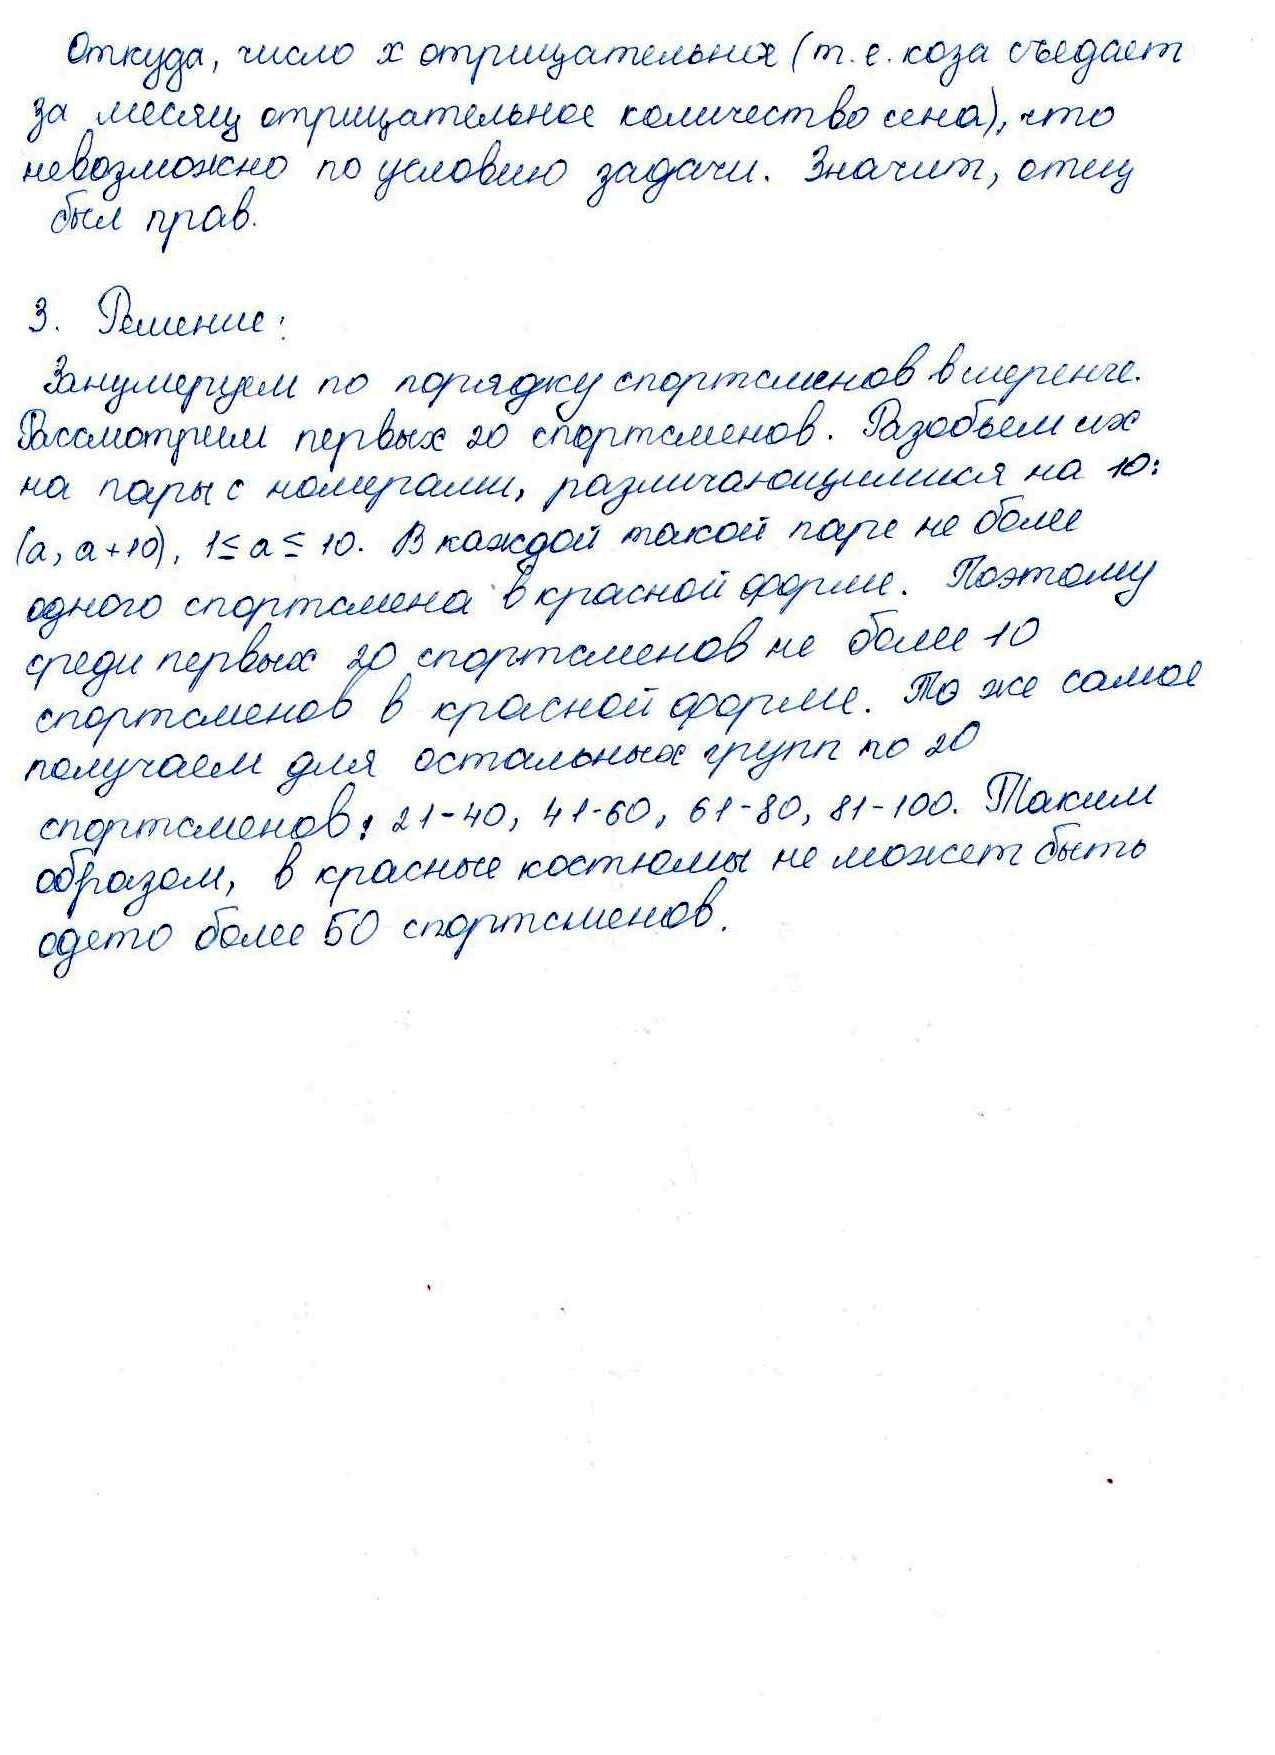 Откуда, число x отрицательное (т.е. коза съедает
за месяц отрицательное количество сена), что
невозможно по условию задачи. Значит, отец
был прав.
3. Решение:
Занумеруем по порядку спортсменов в шеренге.
Рассмотрим первых 20 спортсменов. Разобьем их
на пары с номерами, различающимися на 10:
(a, a+10), 1≤a≤10. В каждой такой паре не более
одного спортсмена в красной форме. Поэтому
среди первых 20 спортсменов не более 10
спортсменов в красной форме. То же самое
получаем для остальных групп по 20
спортсменов: 21-40, 41-60, 61-80, 81-100. Таким
образом, в красные костюмы не может быть
одето более 50 спортсменов.